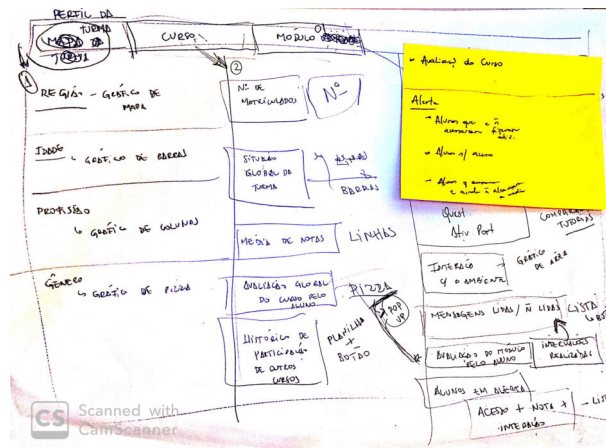 PERFIL DA
TURMA
CURSO
MÓDULO 01
1
REGIÃO - GRÁFICO DE
MAPA
IDADE
GRÁFICO DE BARRAS
PROFISSÃO
GRÁFICO DE COLUNAS
GÊNERO
GRÁFICO DE PIZZA
2
Nº DE
MATRICULADOS
Nº
SITUAÇÃO
GLOBAL DA
TURMA
BARRAS
MÉDIA DE NOTAS
LINHAS
AVALIAÇÃO GLOBAL
DO CURSO PELO
ALUNO
PIZZA
POP
UP
HISTÓRICO DE
PARTICIPAÇÃO
DE OUTROS
CURSOS
PLANILHA
+
BOTÃO
Avaliaç do Curso
Alerta
Alunos que
Alunos s/ acesso
Quest
Ativ Port
INTERAÇÃO
C/ O AMBIENTE
GRÁFICO
DE ÁREA
MENSAGENS LIDAS/Ñ LIDAS
LISTA
AVALIAÇÃO DO MÓDULO
PELO ALUNO
REALIZADAS
ALUNOS EM ALERTA
ACESSO + NOTA +
INTERAÇÃO
CS Scanned with
CamScanner